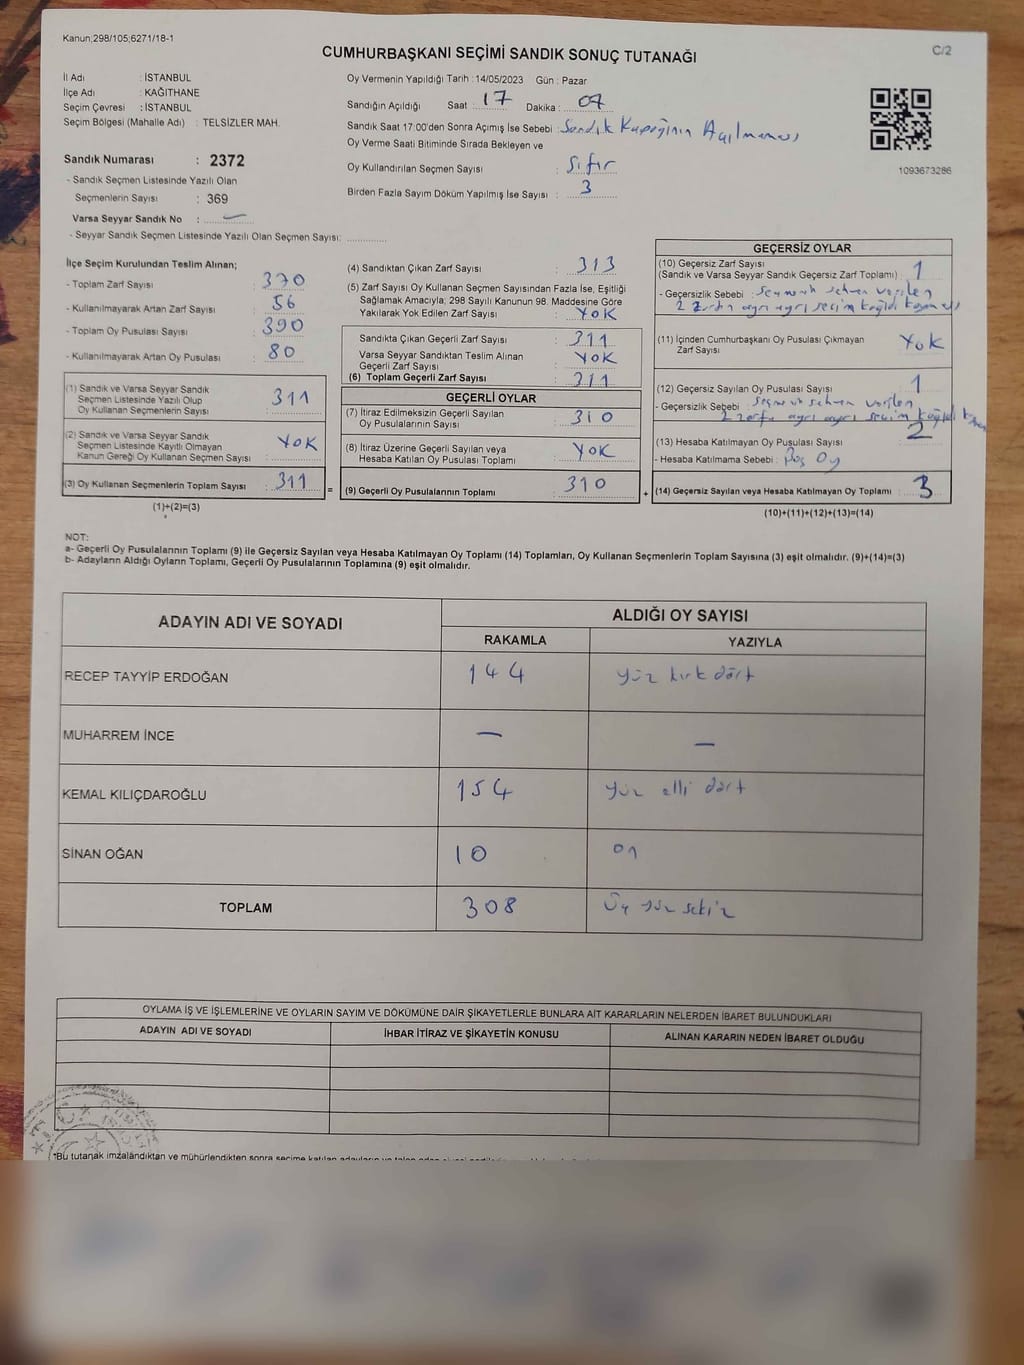 Kanun;298/105;6271/18-1
C/2
CUMHURBAŞKANI SEÇİMİ SANDIK SONUÇ TUTANAĞI
İl Adı : İSTANBUL
İlçe Adı : KAĞITHANE
Seçim Çevresi : İSTANBUL
Seçim Bölgesi (Mahalle Adı) : TELSİZLER MAH.
Sandık Numarası : 2372
- Sandık Seçmen Listesinde Yazılı Olan
Seçmenlerin Sayısı : 369
Varsa Seyyar Sandık No : —
- Seyyar Sandık Seçmen Listesinde Yazılı Olan Seçmen Sayısı:
Oy Vermenin Yapıldığı Tarih : 14/05/2023 Gün : Pazar
Sandığın Açıldığı Saat : 17 Dakika : 07
Sandık Saat 17:00'den Sonra Açımış İse Sebebi : Sandık Kapağının Açılmaması
Oy Verme Saati Bitiminde Sırada Bekleyen ve
Oy Kullandırılan Seçmen Sayısı : Sıfır
Birden Fazla Sayım Döküm Yapılmış İse Sayısı : 3
1093673286
İlçe Seçim Kurulundan Teslim Alınan;
- Toplam Zarf Sayısı : 370
- Kullanılmayarak Artan Zarf Sayısı : 56
- Toplam Oy Pusulası Sayısı : 390
- Kullanılmayarak Artan Oy Pusulası : 80
(1) Sandık ve Varsa Seyyar Sandık
Seçmen Listesinde Yazılı Olup
Oy Kullanan Seçmenlerin Sayısı : 311
(2) Sandık ve Varsa Seyyar Sandık
Seçmen Listesinde Kayıtlı Olmayan
Kanun Gereği Oy Kullanan Seçmen Sayısı : YOK
(3) Oy Kullanan Seçmenlerin Toplam Sayısı : 311
(1)+(2)=(3)
=
(4) Sandıktan Çıkan Zarf Sayısı : 313
(5) Zarf Sayısı Oy Kullanan Seçmen Sayısından Fazla İse, Eşitliği
Sağlamak Amacıyla; 298 Sayılı Kanunun 98. Maddesine Göre
Yakılarak Yok Edilen Zarf Sayısı : YOK
Sandıkta Çıkan Geçerli Zarf Sayısı : 311
Varsa Seyyar Sandıktan Teslim Alınan
Geçerli Zarf Sayısı : YOK
(6) Toplam Geçerli Zarf Sayısı : 311
GEÇERLİ OYLAR
(7) İtiraz Edilmeksizin Geçerli Sayılan
Oy Pusulalarının Sayısı : 310
(8) İtiraz Üzerine Geçerli Sayılan ve
Hesaba Katılan Oy Pusulası Toplamı : YOK
(9) Geçerli Oy Pusulalarının Toplamı : 310
+
GEÇERSİZ OYLAR
(10) Geçersiz Zarf Sayısı
(Sandık ve Varsa Seyyar Sandık Geçersiz Zarf Toplamı) : 1
- Geçersizlik Sebebi : seçmene sehven verilen
2 zarfın ayrı ayrı seçim kağıdı
(11) İçinden Cumhurbaşkanı Oy Pusulası Çıkmayan
Zarf Sayısı : YOK
(12) Geçersiz Sayılan Oy Pusulası Sayısı : 1
- Geçersizlik Sebebi : seçmene sehven verilen
2 zarfa ayrı ayrı seçim kağıdı
(13) Hesaba Katılmayan Oy Pusulası Sayısı : 2
- Hesaba Katılmama Sebebi : Boş Oy
(14) Geçersiz Sayılan veya Hesaba Katılmayan Oy Toplamı : 3
(10)+(11)+(12)+(13)=(14)
NOT:
a- Geçerli Oy Pusulalarının Toplamı (9) ile Geçersiz Sayılan veya Hesaba Katılmayan Oy Toplamı (14) Toplamları, Oy Kullanan Seçmenlerin Toplam Sayısına (3) eşit olmalıdır. (9)+(14)=(3)
b- Adayların Aldığı Oyların Toplamı, Geçerli Oy Pusulalarının Toplamına (9) eşit olmalıdır.
ADAYIN ADI VE SOYADI
ALDIĞI OY SAYISI
RAKAMLA YAZIYLA
RECEP TAYYİP ERDOĞAN 144 yüz kırk dört
MUHARREM İNCE — —
KEMAL KILIÇDAROĞLU 154 yüz elli dört
SİNAN OĞAN 10 on
TOPLAM 308 Üç yüz sekiz
OYLAMA İŞ VE İŞLEMLERİNE VE OYLARIN SAYIM VE DÖKÜMÜNE DAİR ŞİKAYETLERLE BUNLARA AİT KARARLARIN NELERDEN İBARET BULUNDUKLARI
ADAYIN ADI VE SOYADI İHBAR İTİRAZ VE ŞİKAYETİN KONUSU ALINAN KARARIN NEDEN İBARET OLDUĞU
*Bu tutanak imzalandıktan ve mühürlendikten sonra seçime katılan